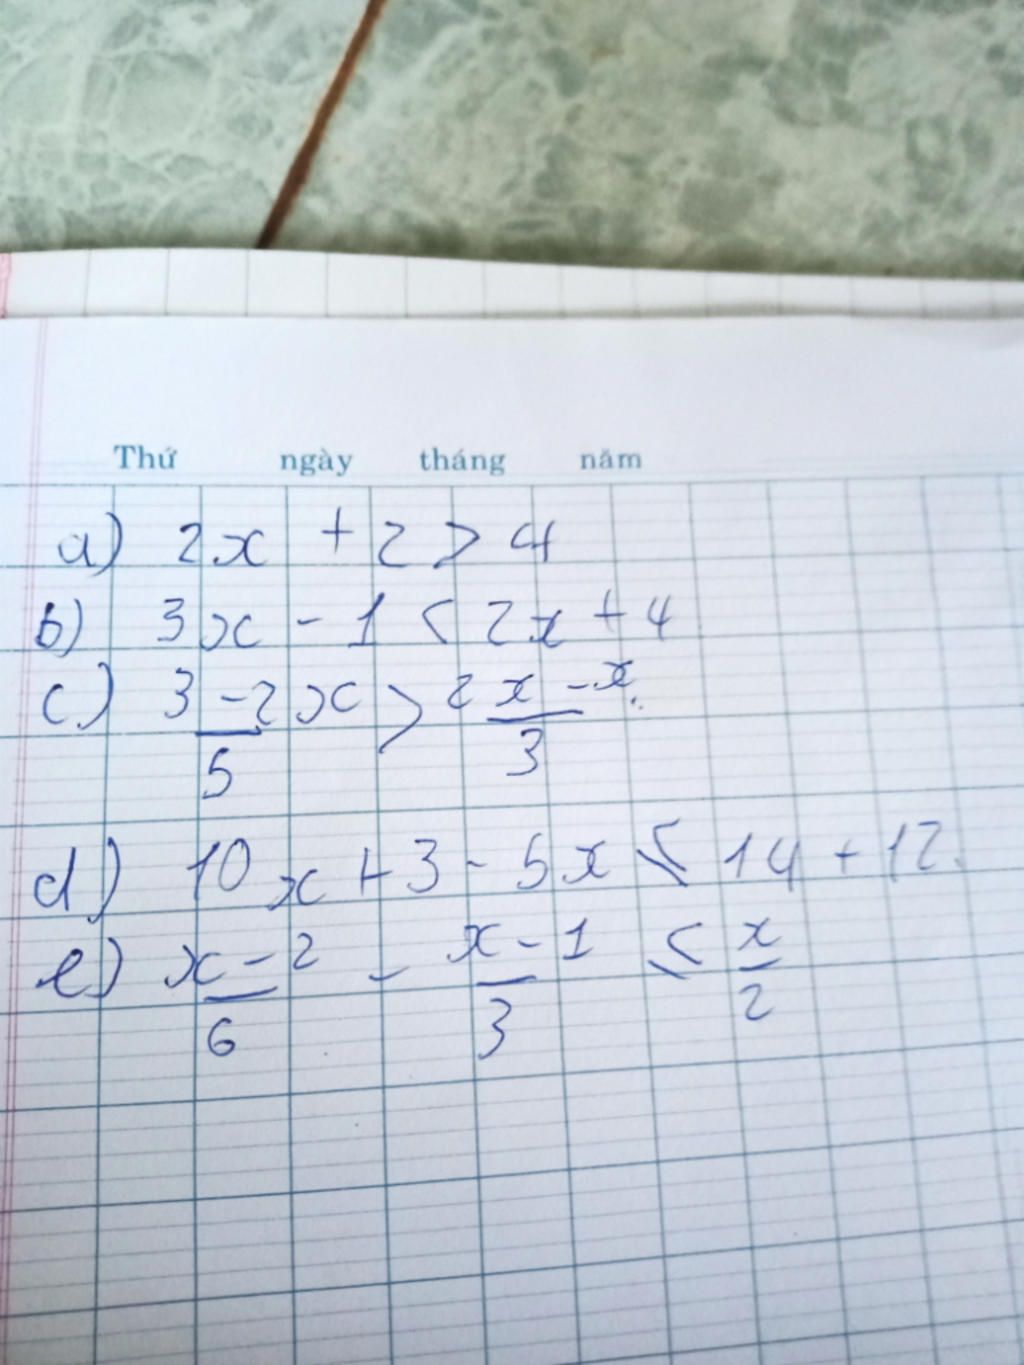 Thứ ngày tháng năm
a) 2x + 2 > 4
b) 3x - 1 < 2x + 4
c) 3 - 2x > 2x - x
5 3
d) 10x + 3 - 5x ≤ 14 + 12
e) x - 2 - x - 1 ≤ x
6 3 2